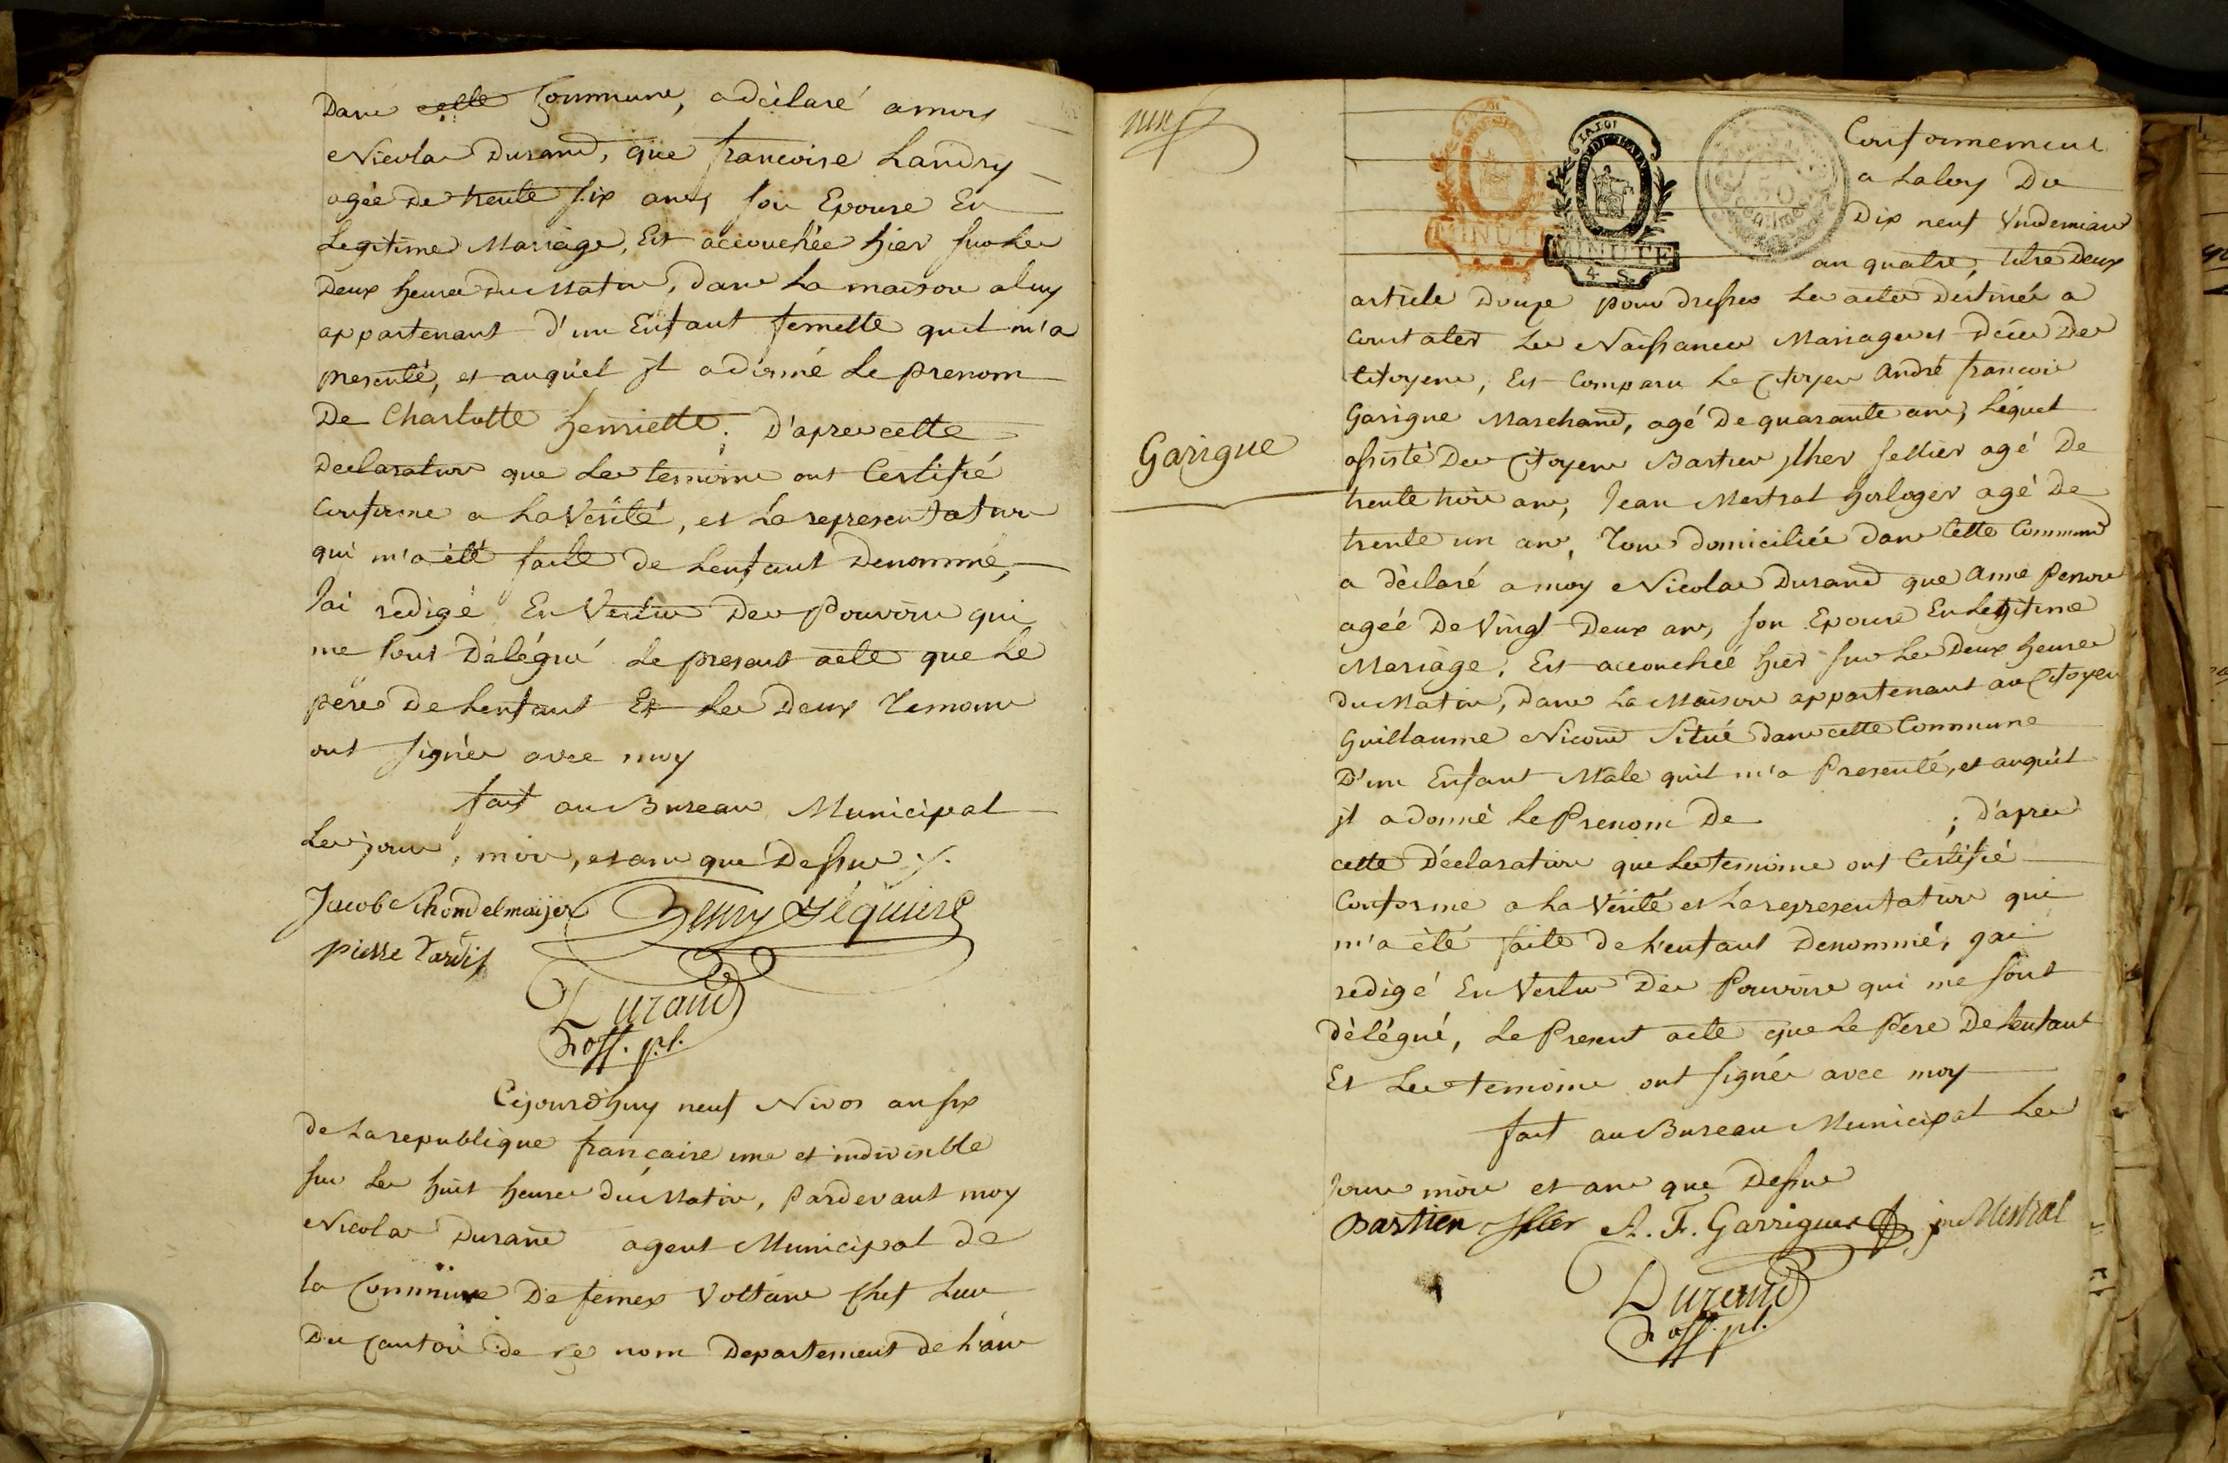 Dans cette Commune, a déclaré a moy
Nicolas Durand, que francoise Landry
agée de trente six ans, son Epouse En
Legitime Mariage, Est accouchée hier sur les
Deux heures du Matin, dans La maison a luy
appartenant d'un Enfant femelle quil m'a
presenté, et auquel jl a donné Le prenom
De Charlotte henriette. D'apres cette
Declaration que Les temoins ont Certifié
Conforme a La Verité, et La representation
qui m'a été faite de Lenfant Denommé,
Jai redigé En Vertu Des Pouvoirs qui
me sont Délégué Le present acte que Le
père de Lenfant Et Les Deux Temoins
ont signés avec moy
fait au Bureau Municipal
Les jour, mois, et an que Dessus
Jacob Schondelmaijer Henry
pierre Tardif
Durand
off. pl.
Cejourdhuy neuf Nivos an six
de La republique française une et indivisible
sur Les huit heures du Matin, Pardevant moy
Nicolas Durand agent Municipal de
la Commune De fernex Voltaire Chef Lieu
Du Canton de ce nom Departement de L'ain
Garigue
LA LOI
MINUTE
LA LOI
MINUTE
4. S.
50
Centimes
Conformement
a La loy Du
Dix neuf Vendemiaire
an quatre, titre Deux
article Douze pour dresser Les actes Destinés a
Constater Les Naissances Mariages et Déces Des
Citoyens, Est Comparu Le Citoyen André francois
Garigue Marchand, agé De quarante ans, Lequel
assisté Des Citoyens Bastien jller sellier agé De
trente trois ans, Jean Mestral horloger agé De
trente un ans, Tous domiciliés dans Cette Commune
a déclaré a moy Nicolas Durand que anne
agée De Vingt Deux ans, son Epouse En Legitime
Mariage. Est accouchée hier sur Les Deux heures
du Matin, Dans La Maison appartenant au Citoyen
Guillaume Nicoud Situé dans cette Commune
D'un Enfant Male quil m'a Presenté, et auquel
jl a donné Le Prenom De ; D'apres
cette Déclaration que Les temoins ont Certifié
Conforme a La Verité et La representation qui
m'a été faite de L'enfant Denommé, jai
redigé En Vertu Des Pouvoirs qui me sont
délégué, Le Present acte que Le Père De Lenfant
Et Les temoins ont signés avec moy
fait au Bureau Municipal Les
jour mois et an que Dessus
Bastien Jller A. F. Garrigues Mestral
Durand
off. pl.